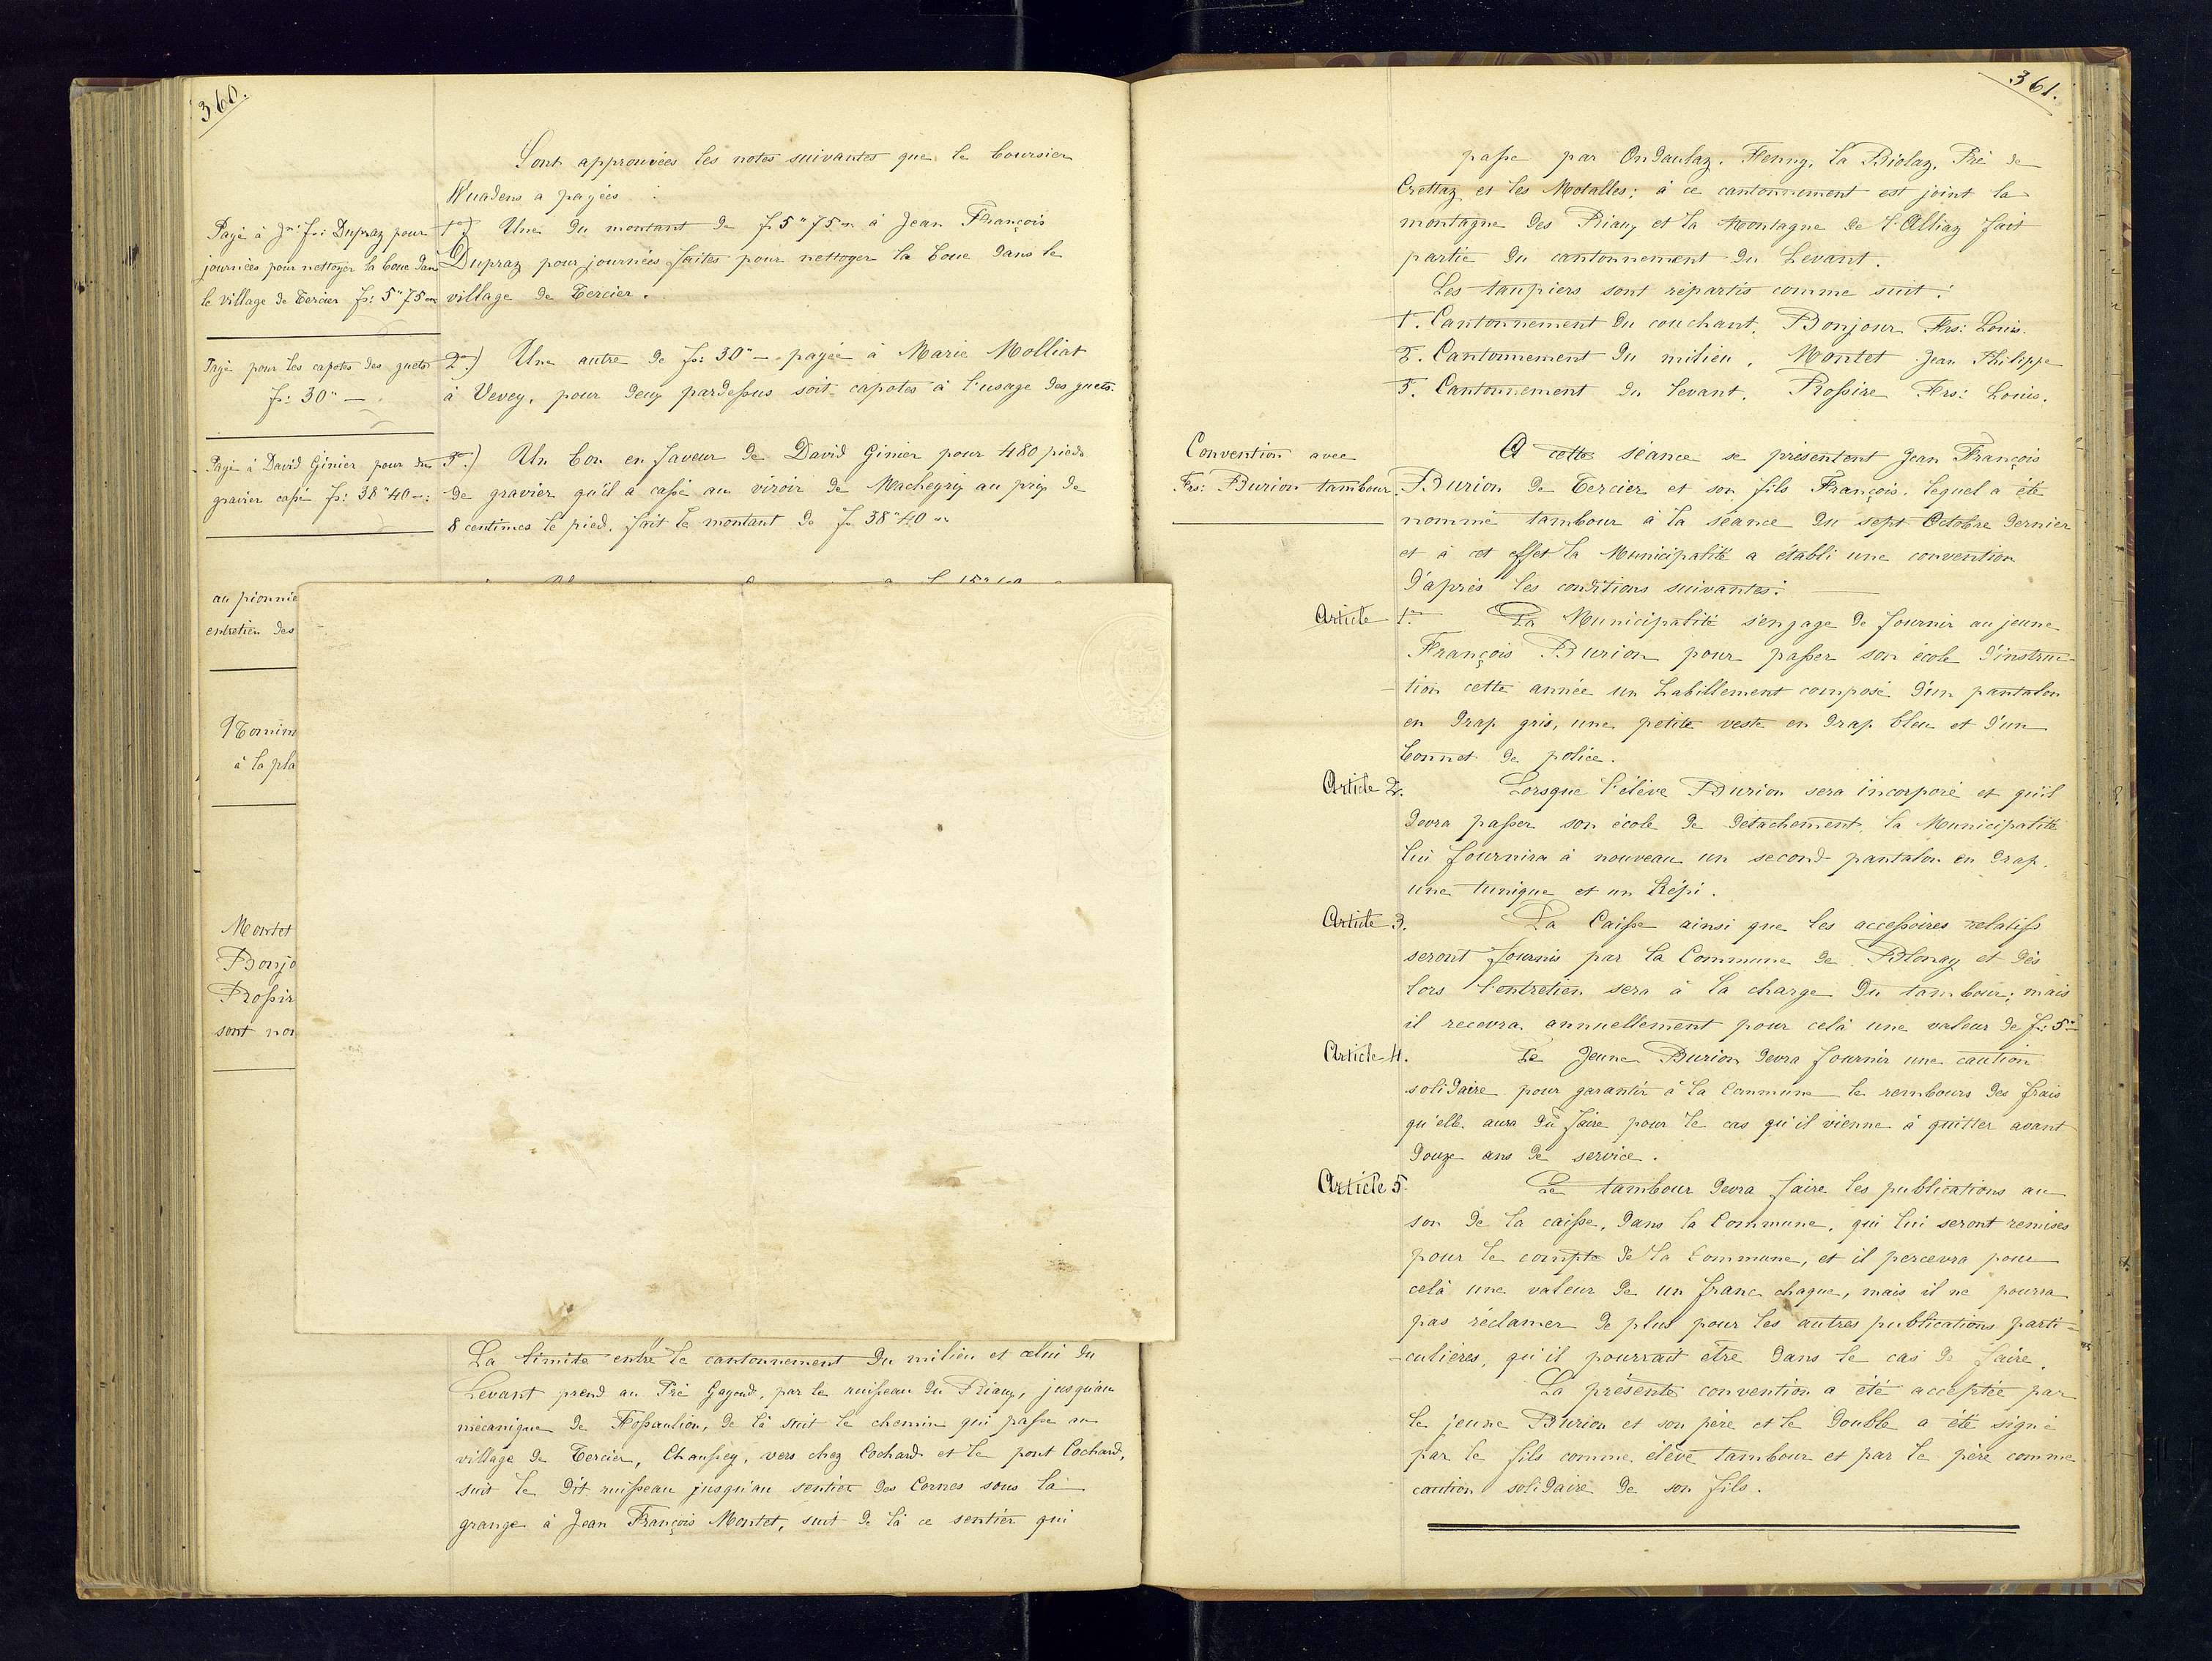 360.
Sont approuvées les notes suivantes que le boursier
Wuadens a payées :
Payé à Jn: Fs: Dupraz pour
journées pour nettoyer la boue dans
le village de Tercier fr: 5"75 cs
1er) Une du montant de f. 5"75 cs à Jean François
Dupraz pour journées faites pour nettoyer la boue dans le
village de Tercier.
Payé pour les capotes des guets
fr: 30" —.
2e.) Une autre de fr: 30" — payée à Marie Molliat
à Vevey, pour deux pardessus soit capotes à l'usage des guets.
Payé à David Ginier pour du
gravier cassé fr: 38"40 —:
3e.) Un bon en faveur de David Ginier pour 480 pieds
de gravier qu'il a cassé au viroir de Macheyrix au prix de
8 centimes le pied. fait le montant de fr 38"40 cs
au pionnie
entretien des
Nomin
à la pla
Montet
Bonjo
Rossir
sont nom
La limite entre le cantonnement du milieu et celui du
Levant prend au Pré Gayoud, par le ruisseau du Riaux, jusqu'au
mécanique de Fossaulion, de là suit le chemin qui passe au
village de Tercier, Chaussey, vers chez Cochard et le pont Cochard,
suit le dit ruisseau jusqu'au sentier des Cornes sous la
grange à Jean François Montet, suit de là ce sentier qui
361.
passe par Ondaulaz, Flenny, la Biolaz, Pré de
Crettaz et les Motalles; à ce cantonnement est joint la
montagne des Riaux et la Montagne de l'Alliaz fait
partie du cantonnement du Levant.
Les taupiers sont répartis comme suit:
1. Cantonnement du couchant. Bonjour Frs: Louis.
2. Cantonnement du milieu. Montet Jean Philippe
3. Cantonnement du levant. Rossire Frs: Louis.
Convention avec
Frs: Burion tambour.
A cette séance se présentent Jean François
Burion de Tercier et son fils François, lequel a été
nommé tambour à la séance du sept Octobre dernier
et à cet effet la Municipalité a établi une convention
d'après les conditions suivantes:
Article 1er. La Municipalité s'engage de fournir au jeune
François Burion pour passer son école d'instruc-
-tion cette année un habillement composé d'un pantalon
en drap gris, une petite veste en drap bleu et d'un
bonnet de police.
Article 2. Lorsque l'élève Burion sera incorporé et qu'il
devra passer son école de détachement, la Municipalité
lui fournira à nouveau un second pantalon en drap,
une tunique et un Képi.
Article 3. La Caisse ainsi que les accessoires relatifs
seront fournis par la Commune de Blonay et dès
lors l'entretien sera à la charge du tambour; mais
il recevra annuellement pour celà une valeur de fr: 5"—
Article 4. Le Jeune Burion devra fournir une caution
solidaire pour garantir à la Commune le rembours des frais
qu'elle aura dû faire pour le cas qu'il vienne à quitter avant
douze ans de service.
Article 5. Le tambour devra faire les publications au
son de la caisse, dans la Commune, qui lui seront remises
pour le compte de la Commune, et il percevra pour
celà une valeur de un franc chaque, mais il ne pourra
pas réclamer de plus pour les autres publications parti-
-culières, qu'il pourrait être dans le cas de faire.
La présente convention a été acceptée par
le jeune Burion et son père et le double a été signé
par le fils comme élève tambour et par le père comme
caution solidaire de son fils.